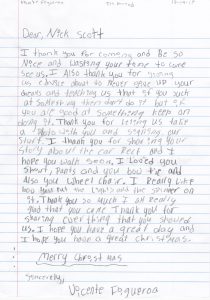 Dear, Nick Scott
I thank you for coming and be so
Nice and wasting your time to come
see us. I Also thank you for giving
us advice about to Never give up your
dreams and teaching us that if you suck
at something then don't do it but if
you are good at something keep on
it. Thank you for letting us take
a Photo with you and signing our
stuff. I thank you for sharing your
story about the car Rect and I
hope you walk soon. I loved you
shirt, pants and you bow tie and
Also you wheel chair. I Really like
how you put the lights and the spinner on
it. Thank you so much I am Really
glad that you came thank you for
sharing everything that you showed
us. I hope you have a great day and
I hope you have a great Christmas.
Merry Christmas
Sincerely,
Vicente Figueroa